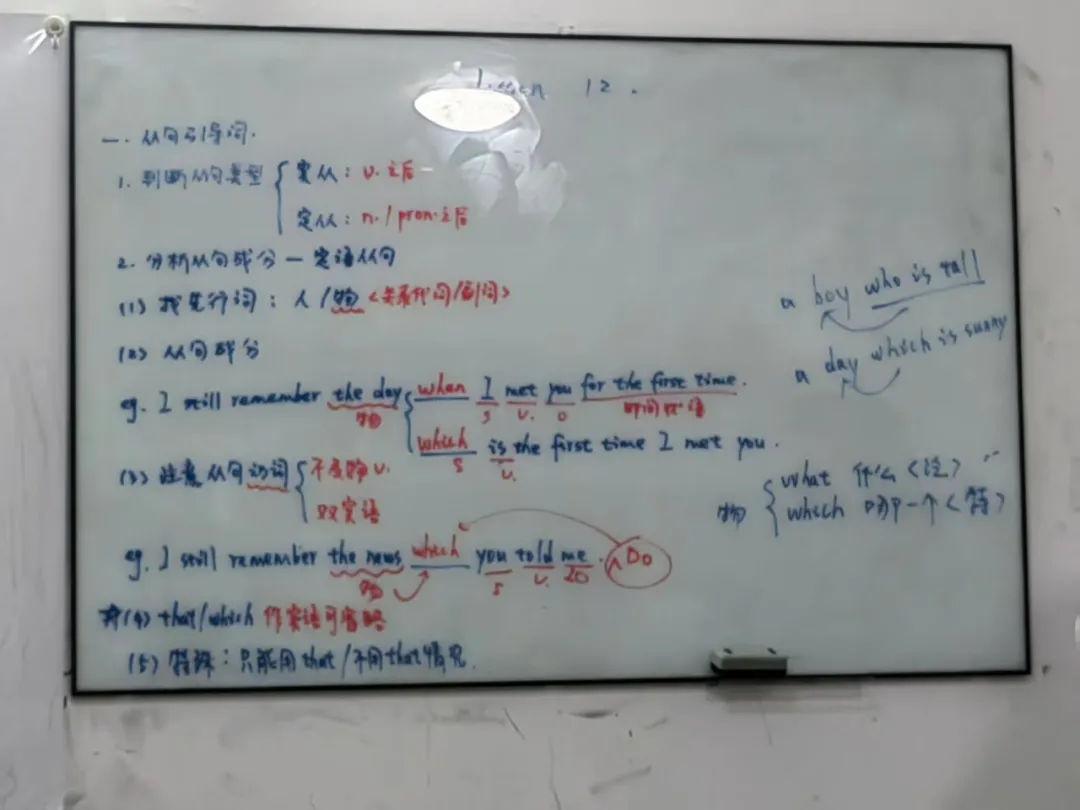 Lesson 12.
一. 从句引导词.
1. 判断从句类型
宾从: v. 之后
定从: n. / pron. 之后
2. 分析从句成分 — 定语从句
(1) 找先行词: 人/物 <关系代词/副词>
(2) 从句成分
eg. I still remember the day when I met you for the first time.
物 s v. o 时间状语
which is the first time I met you.
s v.
(3) 注意从句动词
不及物 v.
双宾语
eg. I still remember the news which you told me. ∧ DO
物 s v. IO
#(4) that/which 作宾语可省略
(5) 特殊: 只能用 that / 不用 that 情况.
a boy who is tall
a day which is sunny
物
what 什么 <泛>
which 哪一个 <特>